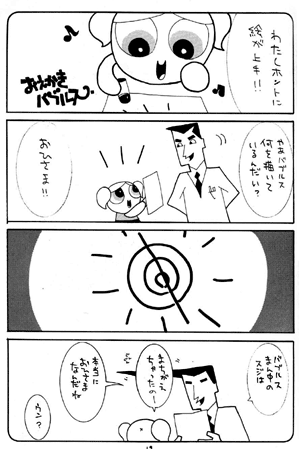 わたしホントに
絵が上手!!
おえかき
バブルス
やあバブルス
何を描いて
いるんだい?
おひさま!!
バブルス
まん中の
スジは
まちがえ
ちゃったのー
本当に
おひさま
なんだね
ウン?